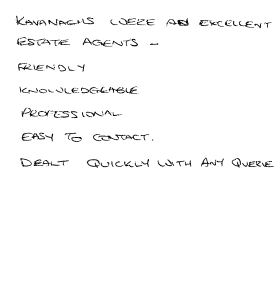 KAVANAGHS WERE AN EXCELLENT
ESTATE AGENTS -
FRIENDLY
KNOWLEDGEABLE
PROFESSIONAL
EASY TO CONTACT.
DEALT QUICKLY WITH ANY QUERIE